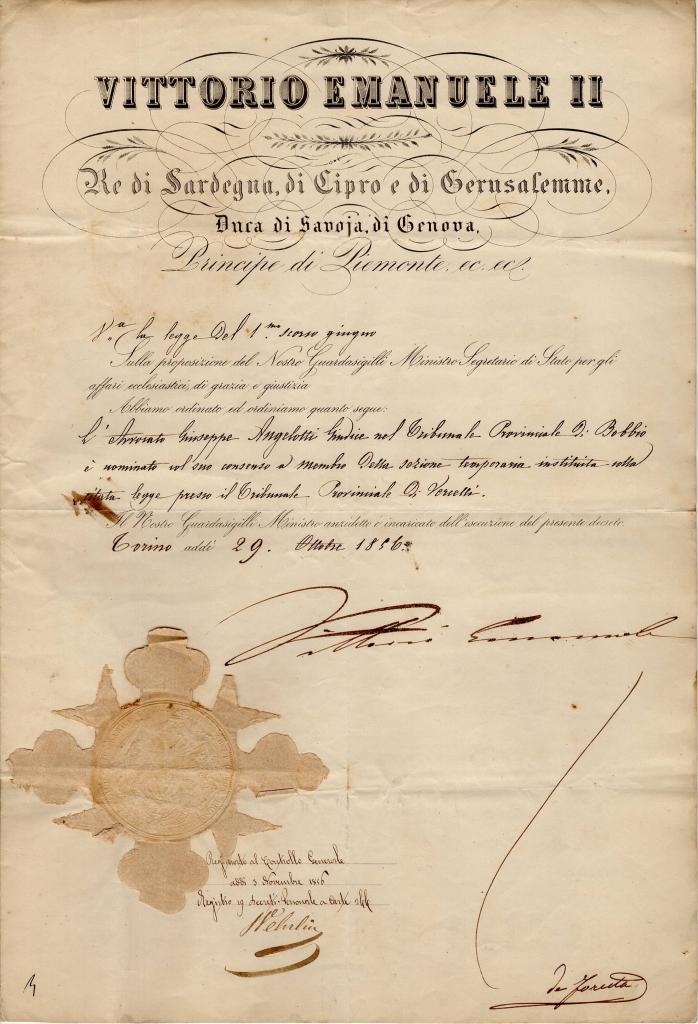 VITTORIO EMANUELE II
Re di Sardegna, di Cipro e di Gerusalemme,
Duca di Savoja, di Genova,
Principe di Piemonte, ec. ec.
V.a la legge del 1.mo scorso giugno
Sulla proposizione del Nostro Guardasigilli Ministro Segretario di Stato per gli
affari ecclesiastici, di grazia e giustizia
Abbiamo ordinato ed ordiniamo quanto segue:
L'Avvocato Giuseppe Angelotti Giudice nel Tribunale Provinciale di Bobbio
è nominato col suo consenso a membro della sezione temporaria instituita colla
legge presso il Tribunale Provinciale di Vercelli.
Il Nostro Guardasigilli Ministro anzidetto è incaricato dell'esecuzione del presente decreto.
Torino addì 29. Ottobre 1856.
Vittorio Emanuele
Registrato al Controllo Generale
addì 3 Novembre 1856
Registro 19 Decreti Personale a Carte 266
Wehrlin
de Foresta